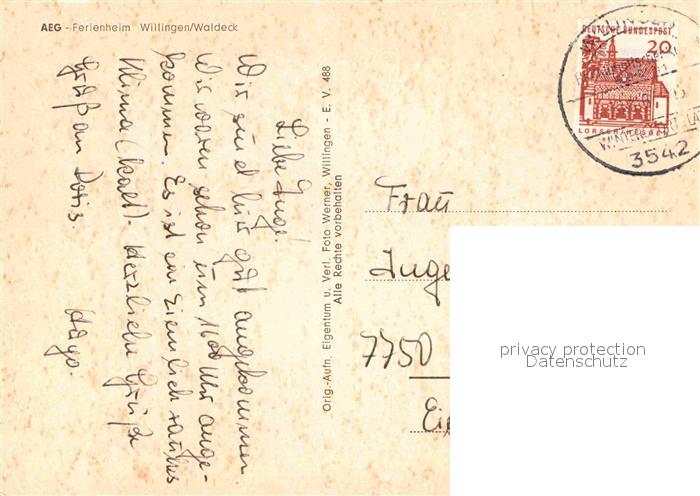 AEG - Ferienheim Willingen/Waldeck
Liebe Inge!
Wir sind hier gut angekommen.
Wir waren schon um 16 00 Uhr ange-
kommen. Es ist ein ziemlich rauhes
Klima (kalt). Herzliche Grüße
Hugo.
Gruß an Doris.
Orig.-Aufn. Eigentum u. Verl. Foto Werner, Willingen - E. V. 488
Alle Rechte vorbehalten
DEUTSCHE BUNDESPOST
20
LORSCH/HESSEN
3542
Frau
Inge
7750
privacy protection
Datenschutz